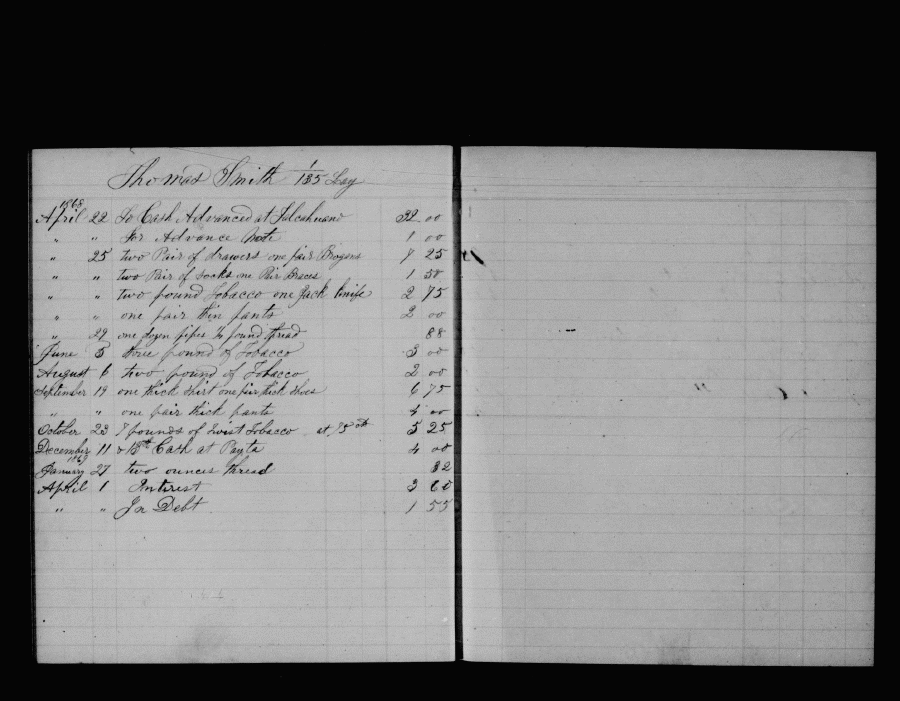 Thomas Smith 1/135 Lay
1868
April 22 To Cash Advanced at Talcahuano 32 00
" " for Advance Note 1 00
" 25 two Pair of drawers one pair Brogans 4 25
" " two Pair of Socks one Pair Braces 1 50
" " two pound Tobacco one Jack knife 2 75
" " one pair thin pants 2 00
" 29 one dozen pipes 1/4 pound thread 88
June 5 three pound of Tobacco 3 00
August 6 two pound of Tobacco 2 00
September 19 one thick shirt one pair thick shoes 6 75
" " one pair thick pants 4 00
October 23 7 pounds of Twist Tobacco at 75 cts 5 25
December 11 & 18th Cash at Payta 4 00
1869
January 27 two ounces thread 32
April 1 Interest 3 60
" " In Debt 1 55